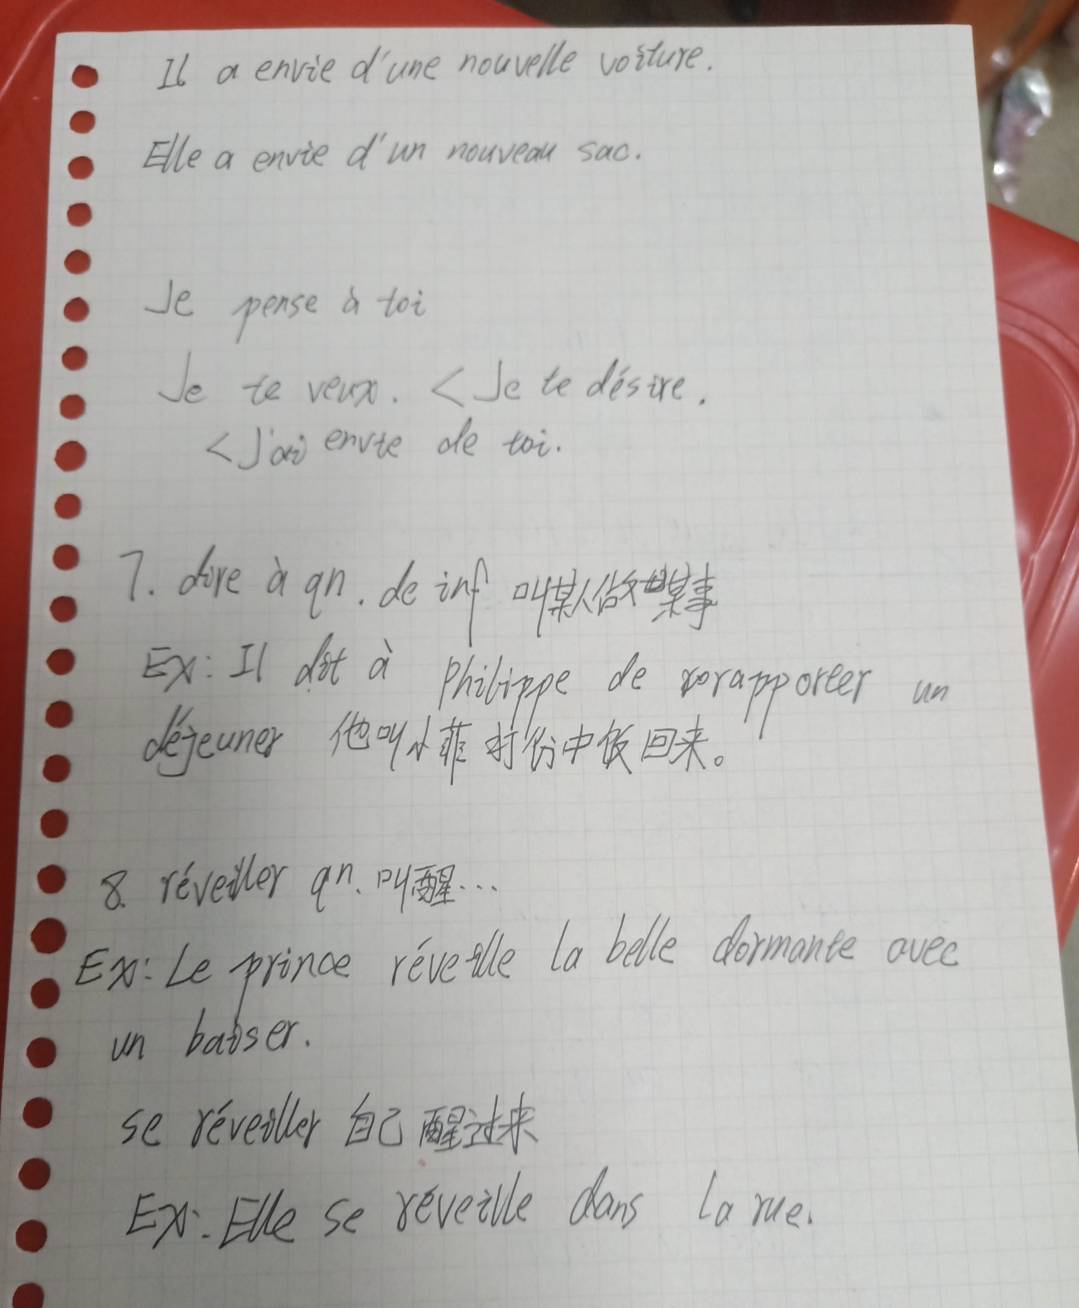 Il a envie d'une nouvelle voiture.
Elle a envie d'un nouveau sac.
Je pense à toi
Je te veux. < Je te désire.
< J'ai envie de toi.
7. dire à qn. de inf 叫某人做某事
Ex: Il dit à Philippe de rapporter un
déjeuner 他叫小菲打份中饭回来。
8. réveiller qn. 叫醒...
Ex: Le prince réveille la belle dormante avec
un baiser.
se réveiller 自己醒过来
Ex: Elle se réveille dans la rue.